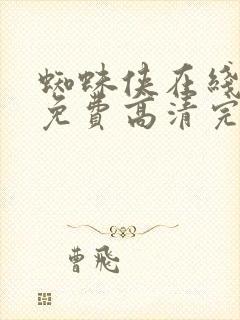 蜘蛛侠在线
免費高清完
曹飛